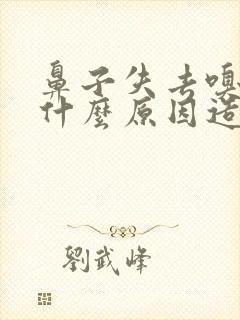 鼻子失去嗅
什麼原因造
劉武峰